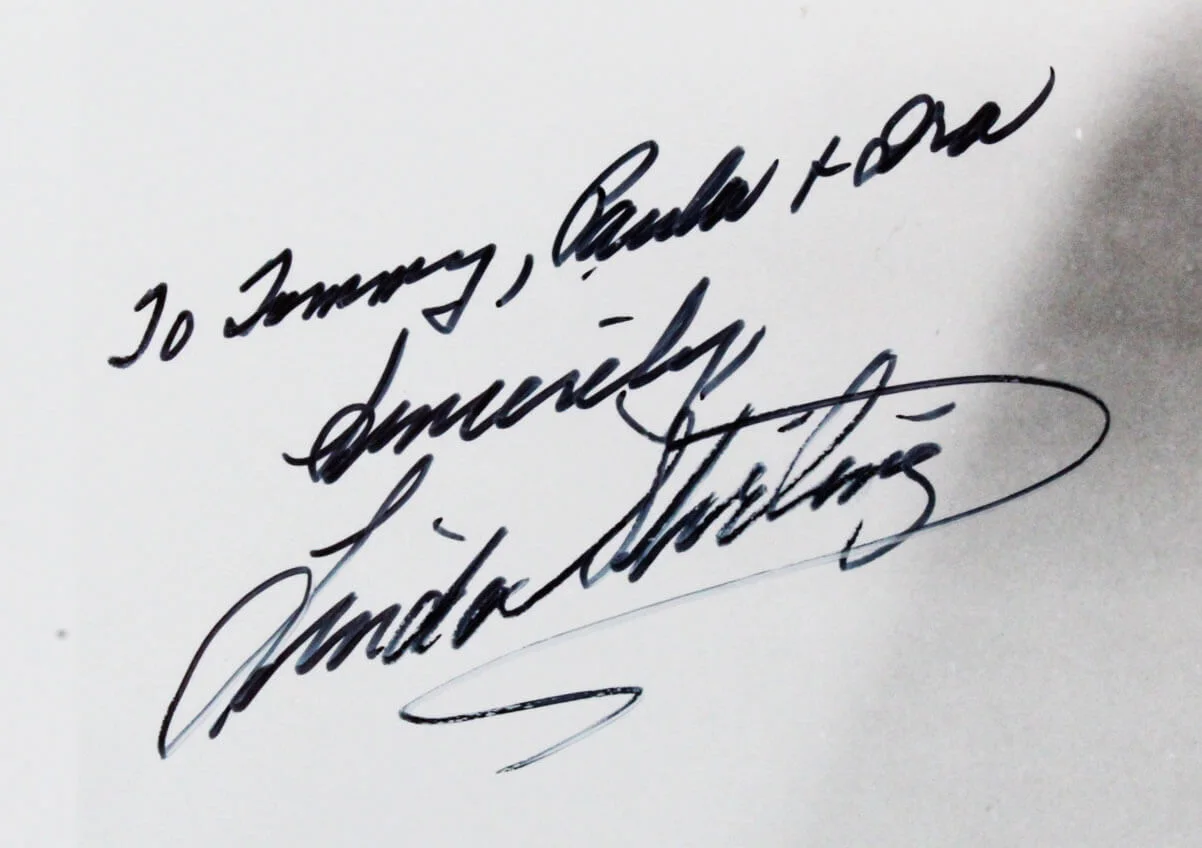 To Tommy, Paula + Ira
Sincerely,
Linda Stirling